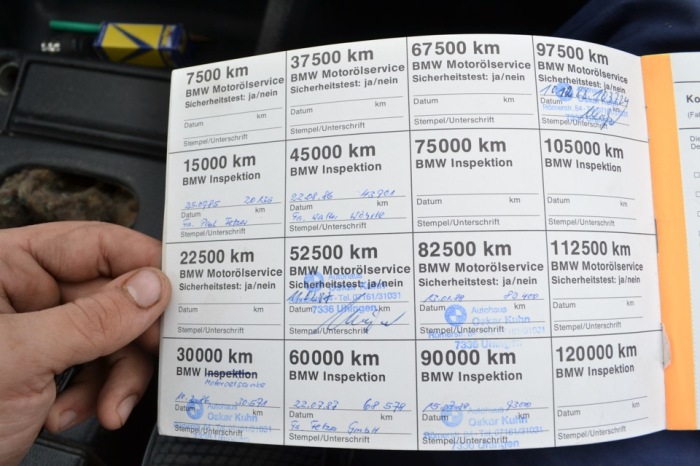 7500 km
BMW Motorölservice
Sicherheitstest: ja/nein
Datum km
Stempel/Unterschrift
37500 km
BMW Motorölservice
Sicherheitstest: ja/nein
Datum km
Stempel/Unterschrift
67500 km
BMW Motorölservice
Sicherheitstest: ja/nein
Datum km
Stempel/Unterschrift
97500 km
BMW Motorölservice
Sicherheitstest: ja/nein
Datum km
Stempel/Unterschrift
15000 km
BMW Inspektion
Datum km
Stempel/Unterschrift
45000 km
BMW Inspektion
22.08.86 43701
Datum km
Stempel/Unterschrift
75000 km
BMW Inspektion
Datum km
Stempel/Unterschrift
105000 km
BMW Inspektion
Datum km
Stempel/Unterschrift
22500 km
BMW Motorölservice
Sicherheitstest: ja/nein
Datum km
Stempel/Unterschrift
52500 km
BMW Motorölservice
Sicherheitstest: ja/nein
Tel. 07161/31031
7336 Uhingen
Stempel/Unterschrift
82500 km
BMW Motorölservice
Sicherheitstest: ja/nein
Datum km
Autohaus
Oskar Kuhn
Stempel/Unterschrift
7336 Uhingen
112500 km
BMW Motorölservice
Sicherheitstest: ja/nein
Datum km
Stempel/Unterschrift
30000 km
BMW Inspektion
Motoroelservice
30571
Datum km
Autohaus
Oskar Kuhn
Stempel/Unterschrift
60000 km
BMW Inspektion
22.07.87 68579
Datum km
Fa. Fetzer GmbH
Stempel/Unterschrift
90000 km
BMW Inspektion
Datum km
Autohaus
Oskar Kuhn
Stempel/Unterschrift
7336 Uhingen
120000 km
BMW Inspektion
Datum km
Stempel/Unterschrift
Ko